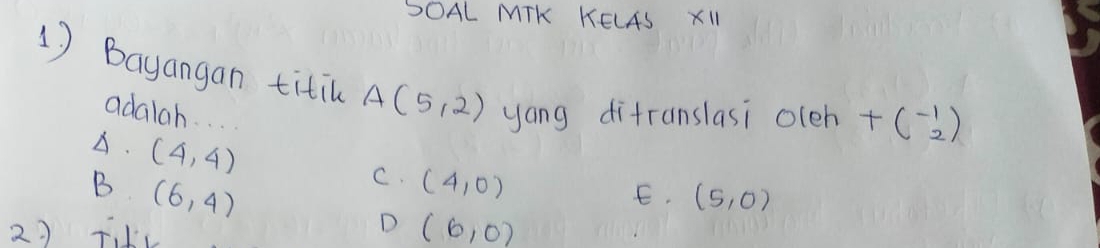 SOAL MTK KELAS XII
1.) Bayangan titik A(5,2) yang ditranslasi oleh + (-1 2)
adalah....
A. (4,4)
B. (6,4)
C. (4,0)
D (6,0)
E. (5,0)
2) Titik